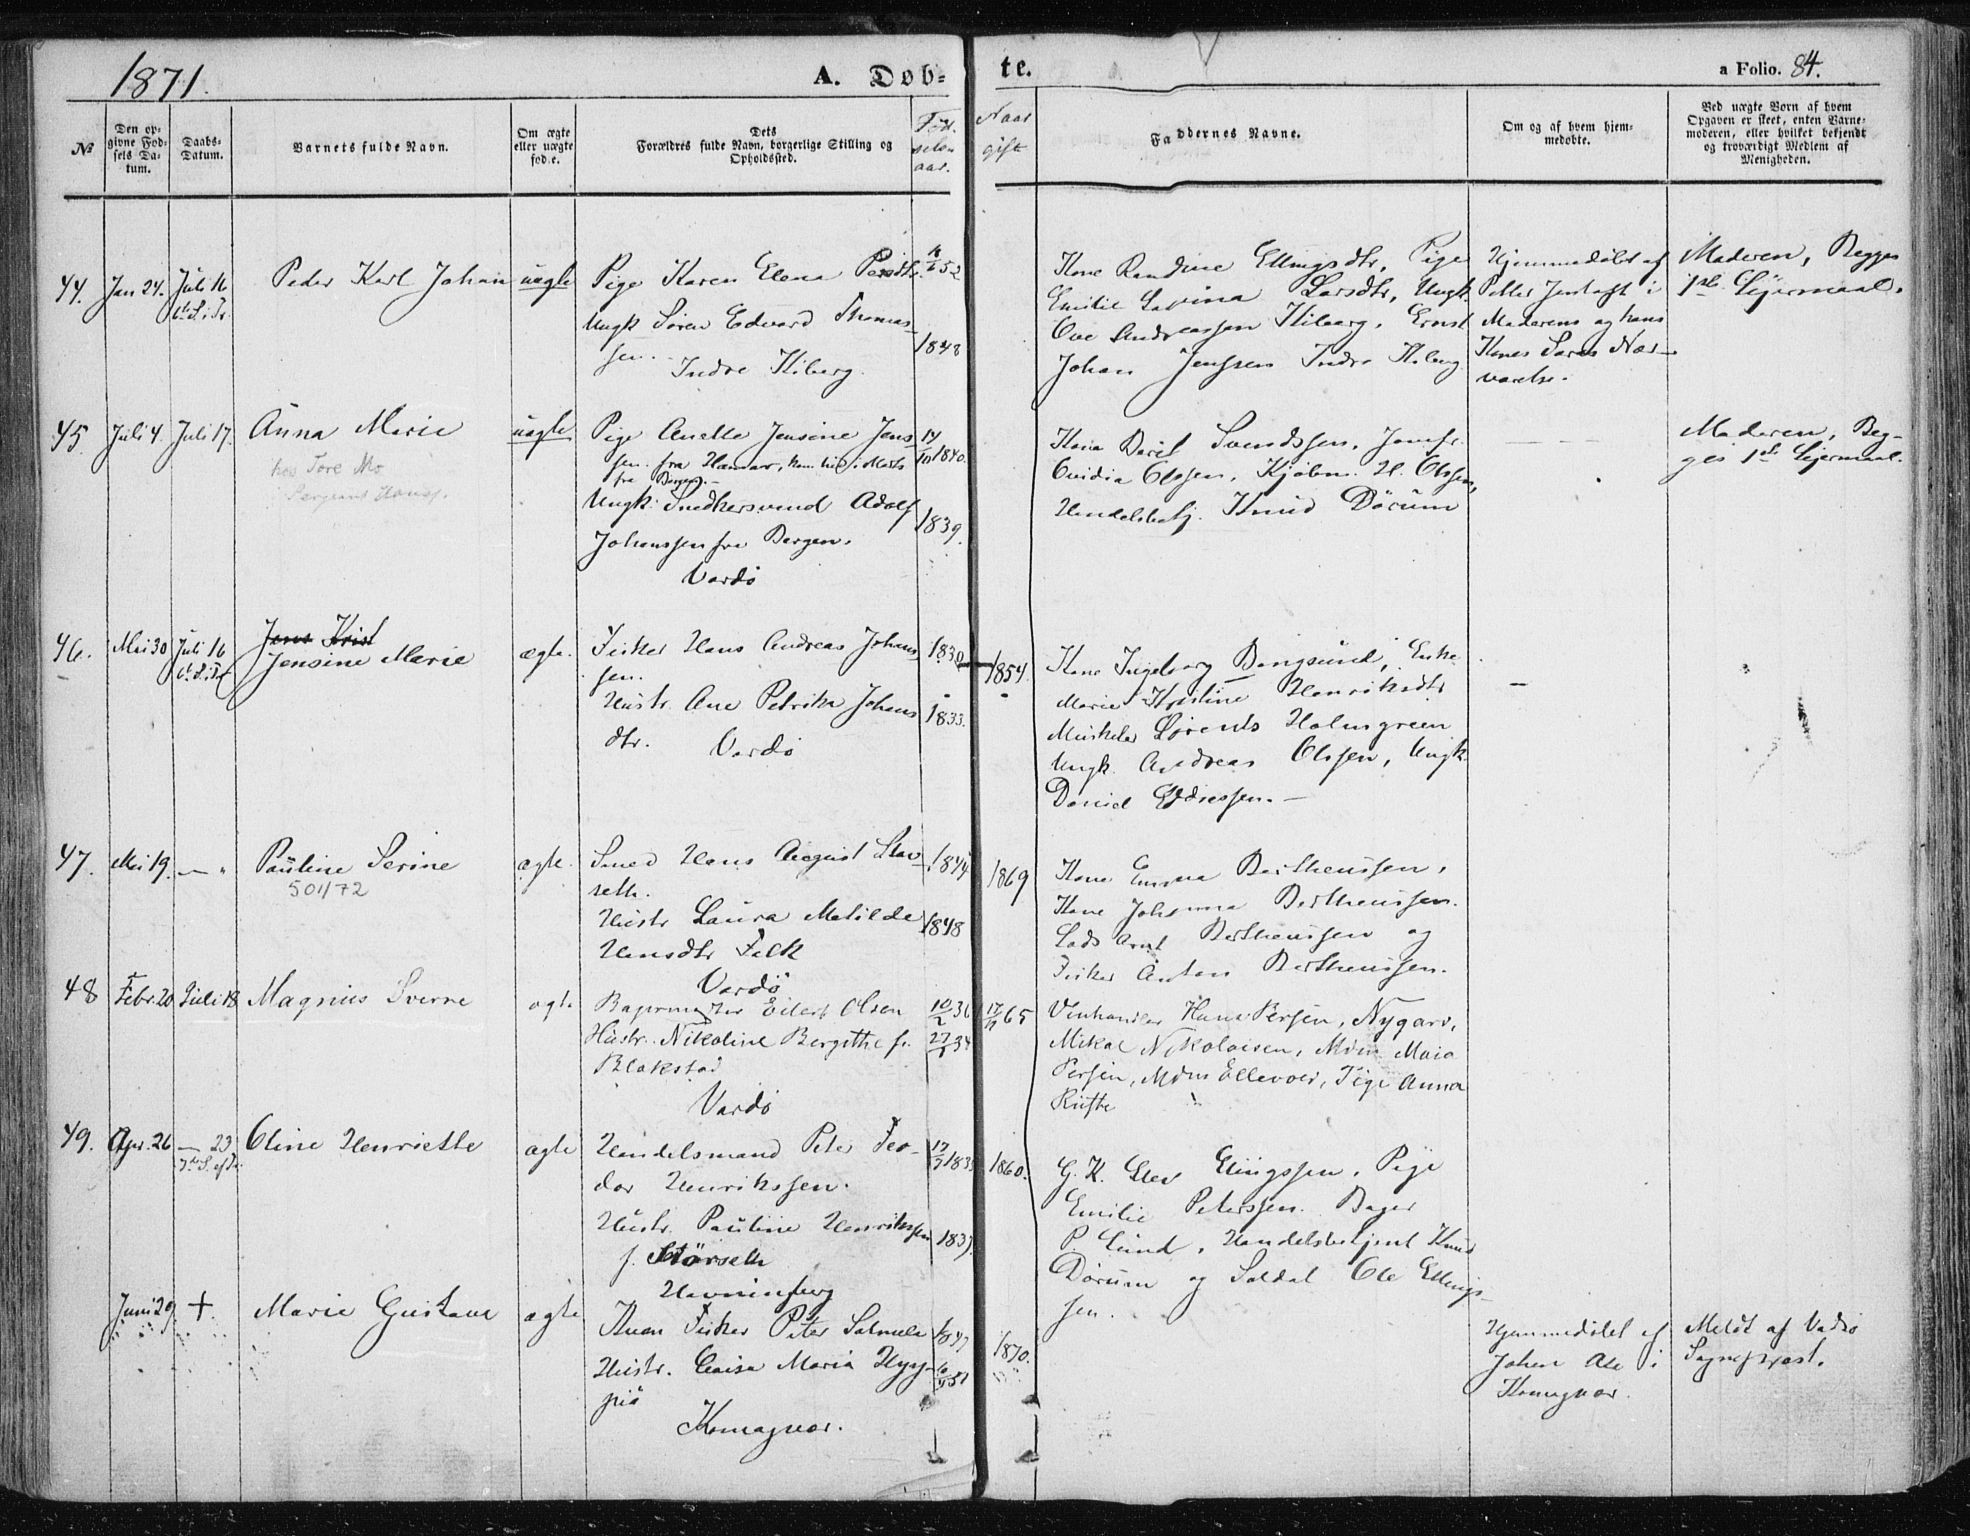 1871.
A. Døb-
te.
a Folio. 84.
№
Den op-
givne Fød-
sels Da-
tum.
Daabs-
Datum.
Barnets fulde Navn.
Om ægte
eller uægte
fød.e.
Dets
Forældres fulde Navn, borgerlige Stilling og
Opholdssted.
Fød-
selsaar.
Naar
gift
Faddernes Navne.
Om og af hvem hjem-
medøbte.
Ved uægte Børn af hvem
Opgaven er skeet, enten Barne-
moderen, eller hvilket bekjendt
og troværdigt Medlem af
Menigheden.
44. Jan 24. Juli 16
6te S. i Tr.
Peder Karl Johan
uægte
Pige Karen Elena Persdtr.
Ungk Søren Edvard Thomas-
sen.
Indre Kiberg.
52
1848
Kone Randine Ellingsdtr, Pige
Emilie Larsdtr, Ungk.
Ove Andreassen Kiberg, Ernst
Johan Jenssen Indre Kiberg
Hjemmedøbt af
Petter i
Moderens og hans
Kones Nær-
værelse.
Moderen, Begges
1ste Lejermaal.
45 Juli 4. Juli 17.
Anna Marie
hos Tore Mo
Sergeant
uægte
Pige Anette Jensine Jens-
sen fra Hamar, kom hid i Marts
fra Bergen.
Ungk. Snedkersvend Adolf
Johanssen fra Bergen.
Vardø
14/10 1840.
1839.
Kone Svendssen, Jomfr.
Ovidia Olssen, Kjøbm. H. Olssen,
Handelsbetj. Knud Dørum
Moderen, Beg-
ges 1ste Lejermaal.
46. Mai 30 Juli 16
6te S. i Tr.
Jens Krist
Jensine Marie
ægte.
Fisker Hans Andreas Johans-
sen.
Hustr. Ane Petrika Johans
dtr.
Vardø
1830
1833.
1854.
Kone Ingeborg Bangsund, Enke
Marie Kristine Henriksdtr
Lorents Holmgreen
Ungk. Andreas Olssen, Ungk.
Daniel
47. Mai 19. — "
Pauline Serine
501/72
ægte.
Smed Hans August Stav-
seth.
Hustr Laura Matilde
Hansdtr Falk
Vardø
1844
1848
1869
Kone Emma Bertheussen,
Kone Johanna Berthenssen.
Lods Arnt Berthenssen og
Fisker Anton Berthenssen.
48 Febr. 20 Juli 18
Magnus Sverre
ægte
Bagermester Eilert Olsen
Hustr. Nikoline Bergitthe f.
Blakstad
Vardø
10/2 36
34
65
Vinhandler Hans Persen, Nygard,
Mikal Nikolaisen, Mdm Maia
Persen, Mdm Ellevold, Pige Anna
49. Apr. 26 — 23
7de S. ef Tr.
Oline Henriette
ægte
Handelsmand Peter Teo-
dor Henrikssen.
Hustr. Pauline Henrikssen
f. Størseth
Havningberg
1860.
G. K. Elev Ellingssen, Pige
Emilie Peterssen. Bager
P. Lund, Handelsbetjent Knud
Dørum og Soldat Ole Ellings-
sen.
Juni 29 +
Marie Gustava
ægte
Kvæn Fisker Peter Salmela
Hustr. Caisa Maria Hyy-
piä
Komagvær.
1847
51
1870.
Hjemmedøbt af
Johan i
Komagvær.
Meldt af Vadsø
Sogneprest.